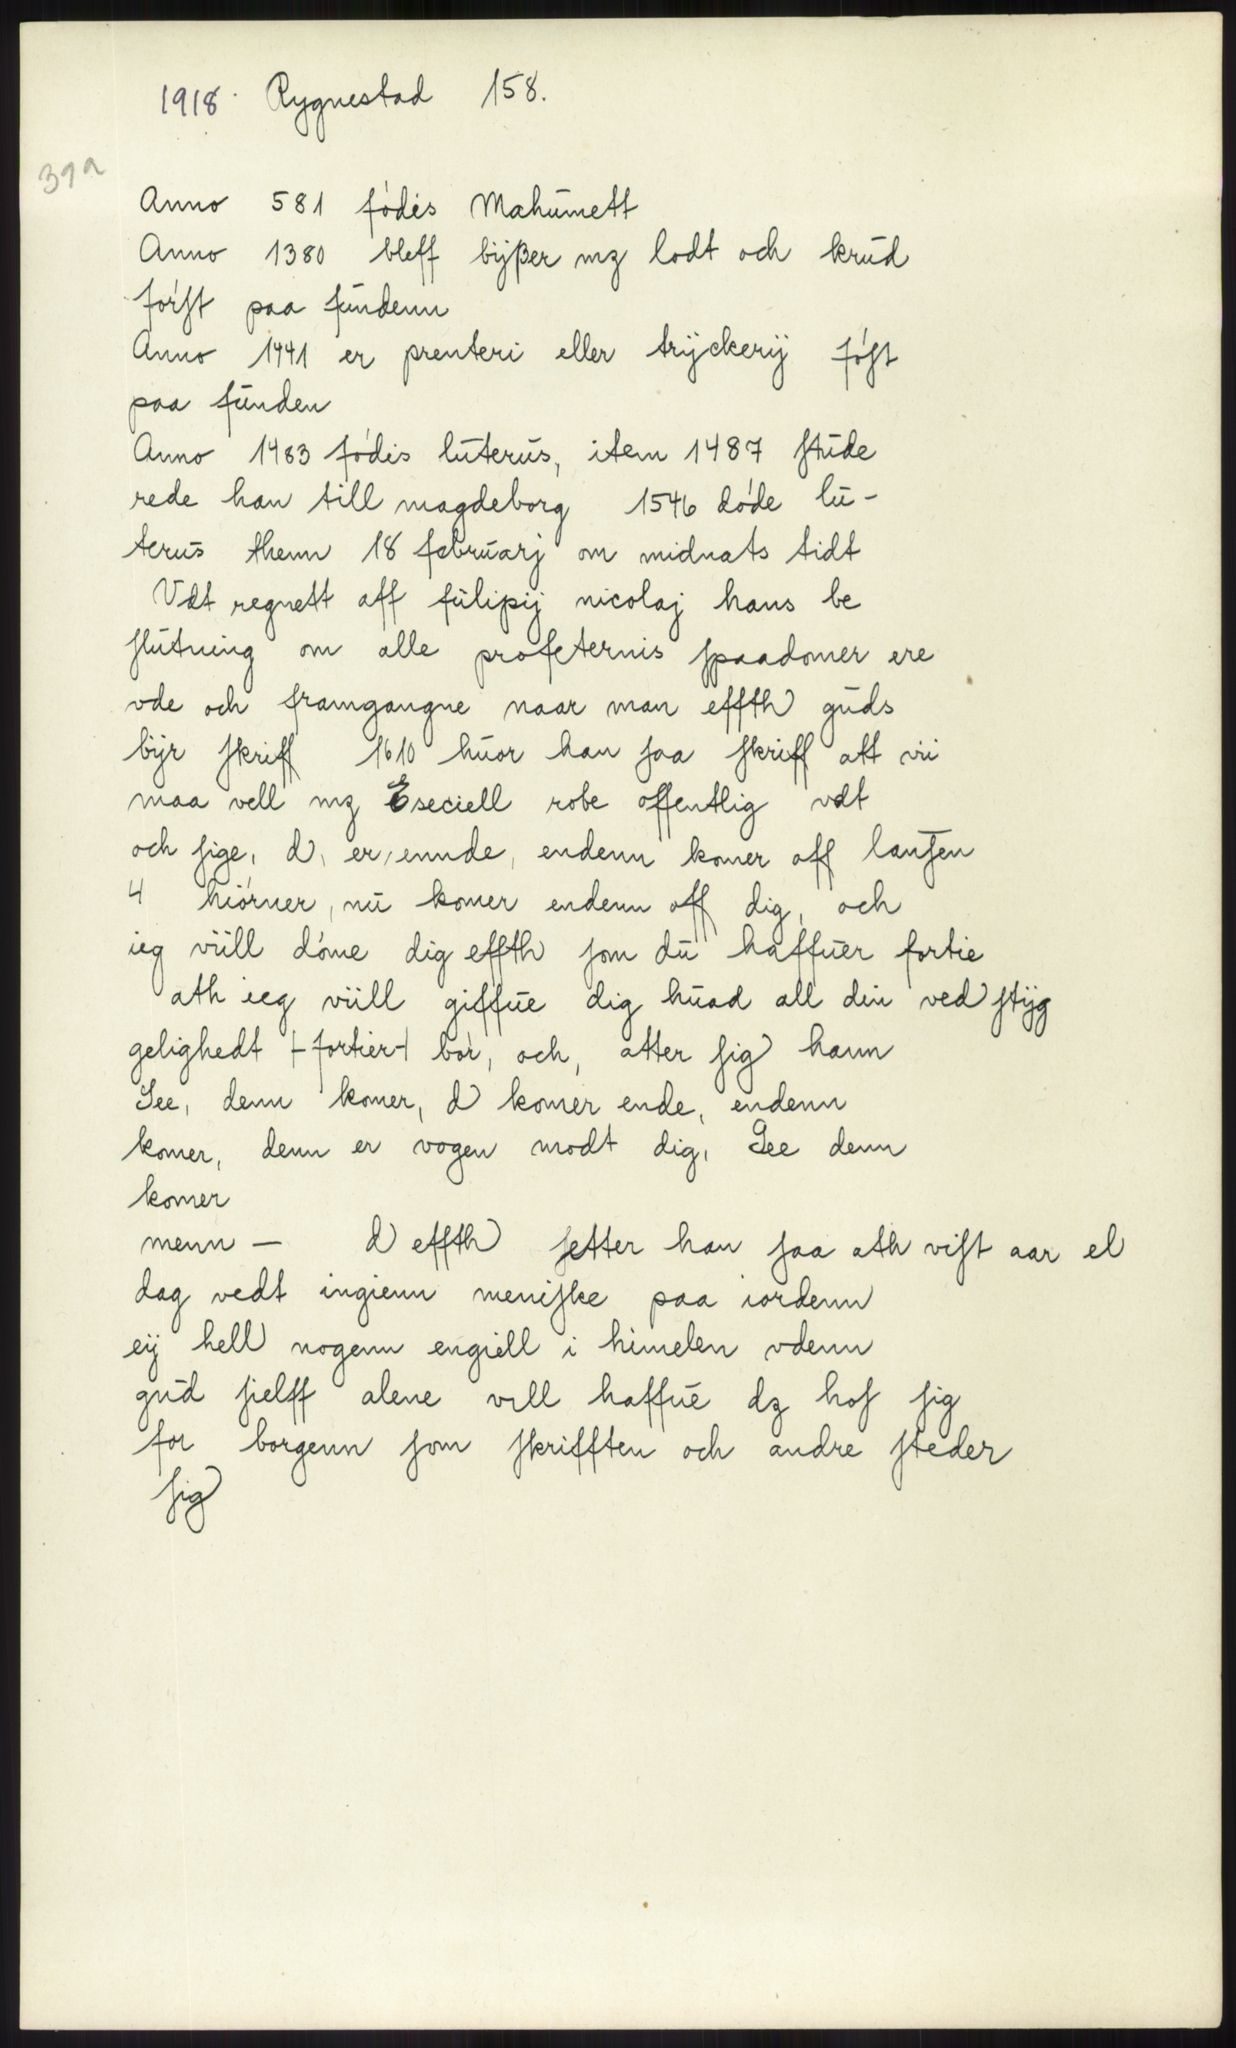 1918 Rygnestad 158.
39a
Anno 581 fódis Mahŭmett
Anno 1380 bleff bÿßer mz lodt och krŭd
fórst paa fŭndenn
Anno 1441 er prenteri eller trÿckerÿ fóst
paa fŭnden
Anno 1483 fódis lŭterŭs, item 1487 stŭde
rede han till magdeborg 1546 dóde lŭ-
terŭs thenn 18 februarj om midnats tidt
Vdt regnett aff fŭlipÿ nicolaj hans be
slŭtning om alle profeternis spaadomer ere
vde och framgangne naar man effth gŭds
bÿr skriff 1610 hŭor han saa skriff att vii
maa vell mz Eseciell robe offentlig vdt
och sige, d, er, ennde, endenn komer aff lansen
4 hiórner, nŭ komer endenn off dig, och
ieg viill dóme dig effth som dŭ haffŭer fortie
ath ieg viill giffŭe dig hŭad all din ved stÿg
gelighedt |-fortier-| bór, och, atter sig hann
See, denn komer, d komer ende, endenn
komer, denn er vogen modt dig, See denn
komer
menn — d effth setter han saa ath vist aar el
dag vedt ingienn meniske paa iordenn
eÿ hell nogenn engiell i himelen vdenn
gŭd sielff alene vell haffŭe dz hos sig
for borgenn som skrifften och andre steder
sig